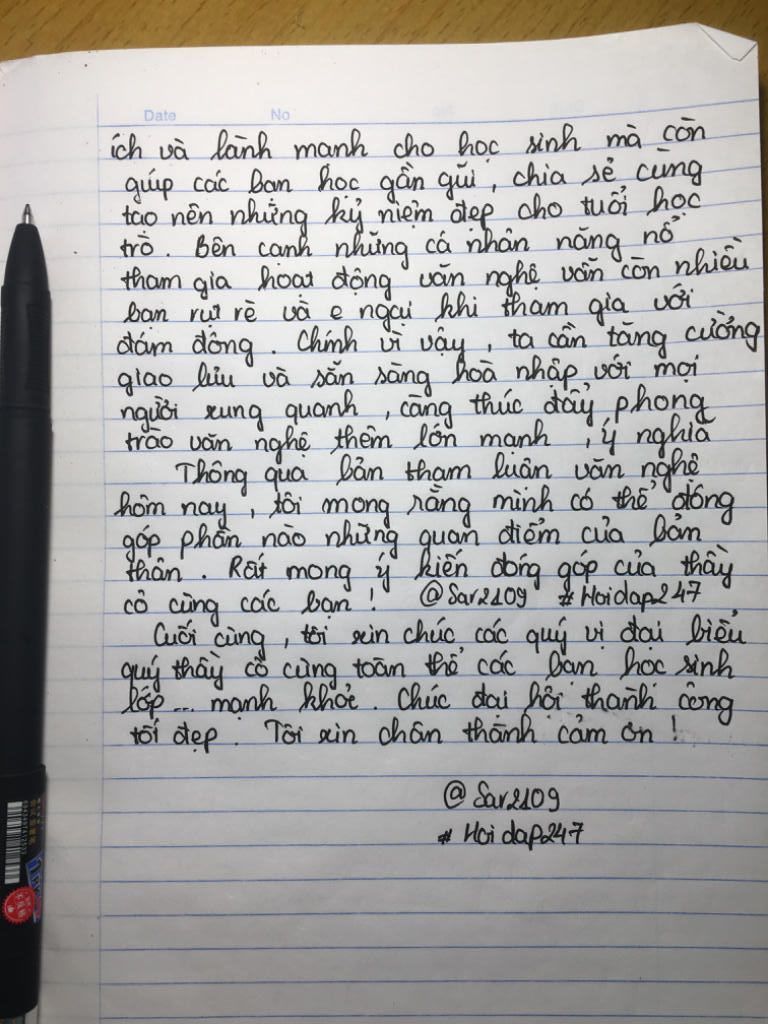 Date No
ích và lành mạnh cho học sinh mà còn
giúp các bạn học gần gũi, chia sẻ cùng
tạo nên những kỷ niệm đẹp cho tuổi học
trò. Bên cạnh những cá nhân năng nổ
tham gia hoạt động văn nghệ vẫn còn nhiều
bạn rụt rè và e ngại khi tham gia với
đám đông. Chính vì vậy, ta cần tăng cường
giao lưu và sẵn sàng hoà nhập với mọi
người xung quanh, càng thúc đẩy phong
trào văn nghệ thêm lớn mạnh, ý nghĩa
Thông qua bản tham luận văn nghệ
hôm nay, tôi mong rằng mình có thể đóng
góp phần nào những quan điểm của bản
thân. Rất mong ý kiến đóng góp của thầy
cô cùng các bạn! @Sar2109 #Hoidap247
Cuối cùng, tôi xin chúc các quý vị đại biểu
quý thầy cô cùng toàn thể các bạn học sinh
lớp... mạnh khoẻ. Chúc đại hội thành công
tốt đẹp. Tôi xin chân thành cảm ơn!
@Sar2109
#Hoidap247